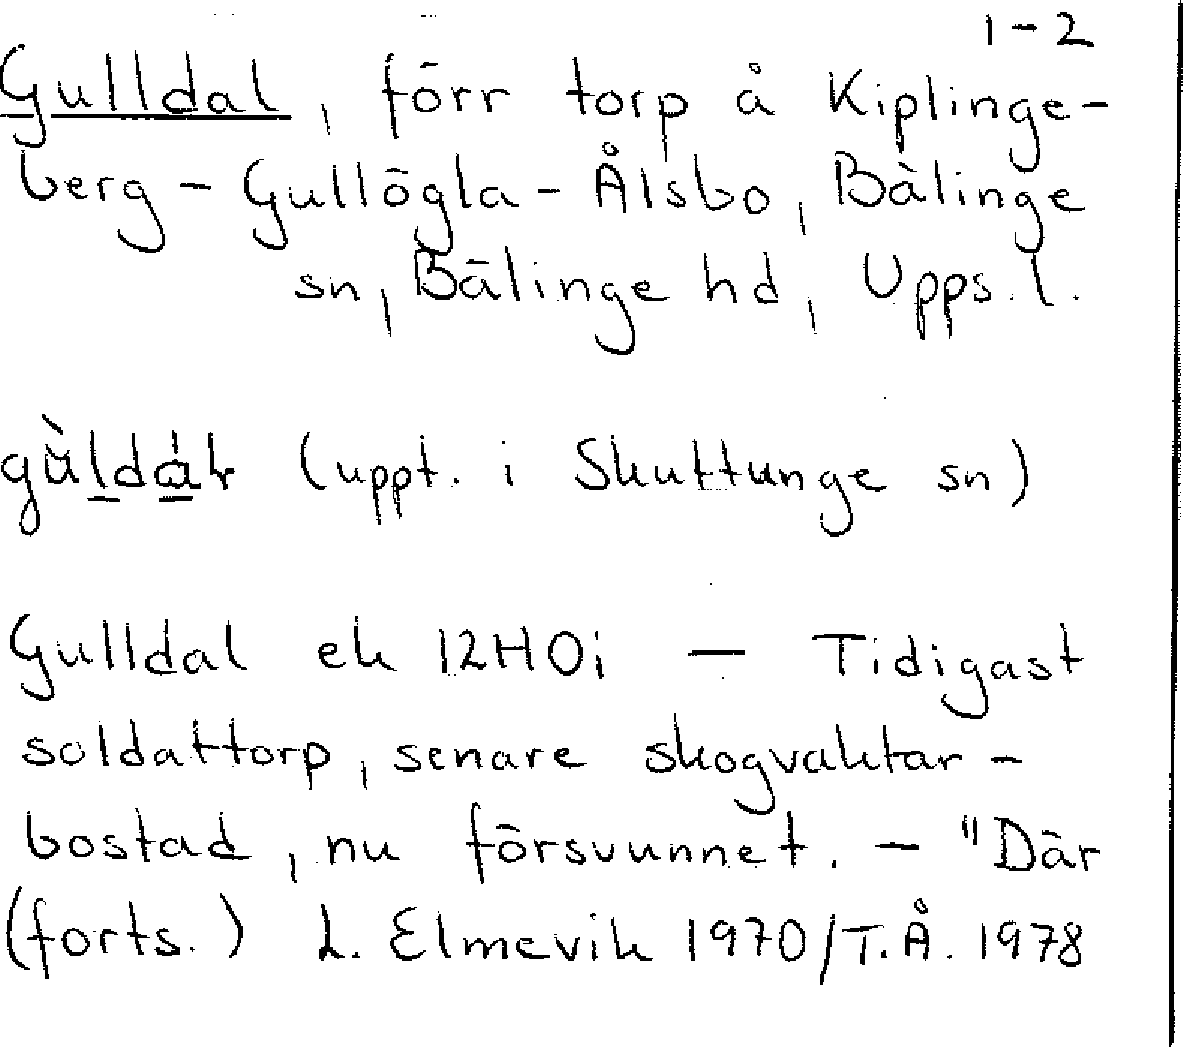 1-2
Gulldal, förr torp å Kiplinge-
berg - Gullögla - Ålsbo, Bälinge
sn, Bälinge hd, Upps. l.
(uppt. i Skuttunge sn)
Gulldal ek 12H0i — Tidigast
soldattorp, senare skogvaktar-
bostad, nu försvunnet. — "Där
(forts.) L. Elmevik 1970/T.Å. 1978